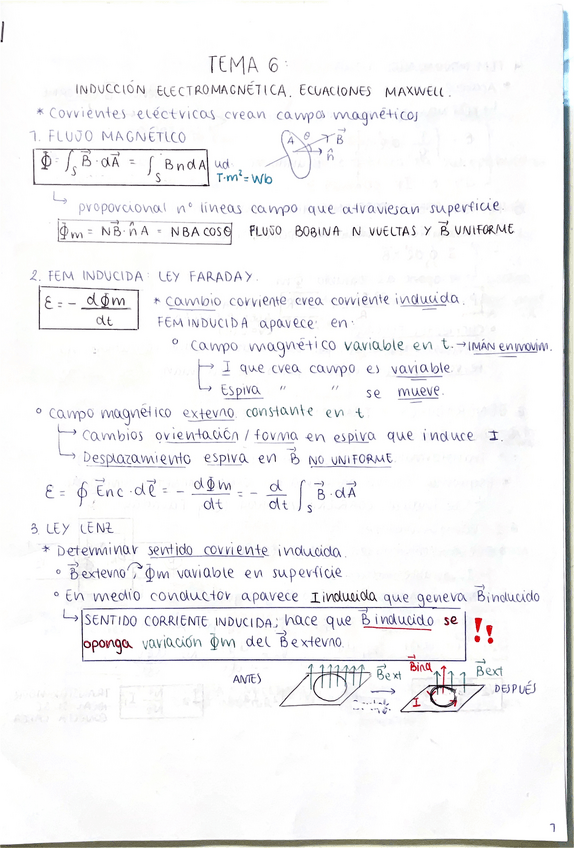 TEMA 6:
INDUCCIÓN ELECTROMAGNÉTICA. ECUACIONES MAXWELL.
* Corrientes eléctricas crean campos magnéticos
1. FLUJO MAGNÉTICO
Φ = ∫s B⃗ · dA⃗ = ∫s Bn dA ud. T·m² = Wb
A θ B⃗ n̂
↳ proporcional nº líneas campo que atraviesan superficie
Φm = NB⃗ · n̂ A = NBA cos θ FLUJO BOBINA N VUELTAS Y B⃗ UNIFORME
2. FEM INDUCIDA: LEY FARADAY.
ε = - dΦm/dt * cambio corriente crea corriente inducida.
FEM INDUCIDA aparece en:
° campo magnético variable en t. → IMÁN en movim.
↳ I que crea campo es variable
↳ Espira " " se mueve.
° campo magnético externo constante en t
↳ Cambios orientación / forma en espira que induce I.
↳ Desplazamiento espira en B⃗ NO UNIFORME
ε = ∮ E⃗nc · dℓ⃗ = - dΦm/dt = - d/dt ∫s B⃗ · dA⃗
3. LEY LENZ
* Determinar sentido corriente inducida.
° B⃗ externo, Φm variable en superficie
° En medio conductor aparece I inducida que genera B⃗ inducido
↳ SENTIDO CORRIENTE INDUCIDA; hace que B⃗ inducido se
oponga variación Φm del B⃗ externo. !!
ANTES B⃗ext → B⃗ind B⃗ext I DESPUÉS
1